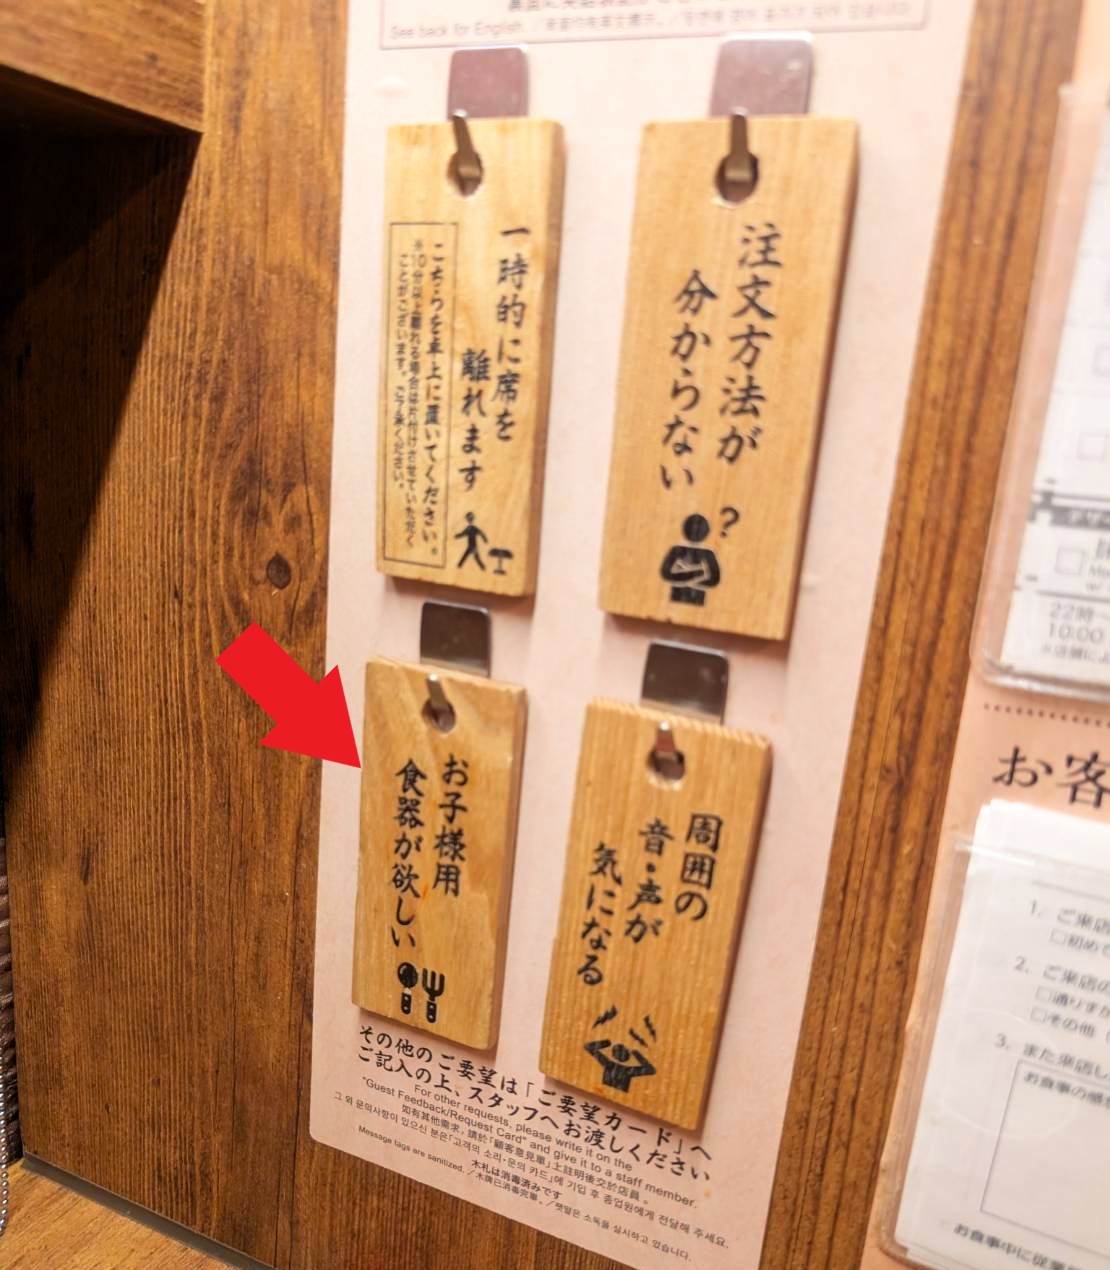 See back for English.
注文方法が
分からない
?
一時的に席を
離れます
こちらを卓上に置いてください。
※10分以上離れる場合は片付けさせていただく
ことがございます。ご了承ください。
お子様用
食器が欲しい
周囲の
音・声が
気になる
その他のご要望は「ご要望カード」へ
ご記入の上、スタッフへお渡しください
For other requests, please write it on the
"Guest Feedback/Request Card" and give it to a staff member.
如有其他需求，請於「顧客意見單」上註明後交於店員。
그 외 문의사항이 있으신 분은「고객의 소리・문의 카드」에 기입 후 종업원에게 전달해 주세요.
木札は消毒済みです
Message tags are sanitized.／木牌已消毒完畢。／팻말은 소독을 실시하고 있습니다.
22時〜
10:00
お客
1. ご来店
□初めて
2. ご来店の
□通りすが
□その他
3. また来店し
お食事の感
お食事中に従業